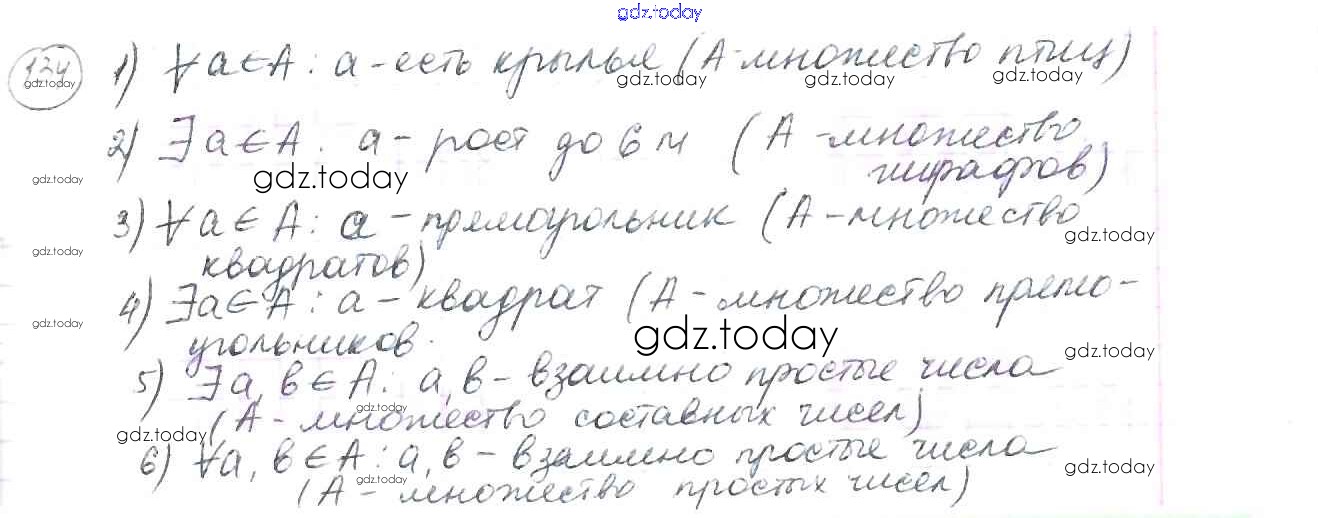 gdz.today
134 1) ∀a∈A: a-есть крылья (A-множество птиц)
gdz.today gdz.today gdz.today gdz.today
2) ∃a∈A: a-рост до 6 м (A-множество
жирафов)
gdz.today gdz.today
3) ∀a∈A: a-прямоугольник (A-множество
gdz.today
квадратов)
gdz.today
4) ∃a∈A: a-квадрат (A-множество прямо-
gdz.today gdz.today
угольников.
gdz.today
5) ∃a, b∈A: a, b-взаимно простые числа
gdz.today
(A-множество составных чисел)
gdz.today
6) ∀a, b∈A: a, b-взаимно простые числа
gdz.today gdz.today
(A-множество простых чисел)